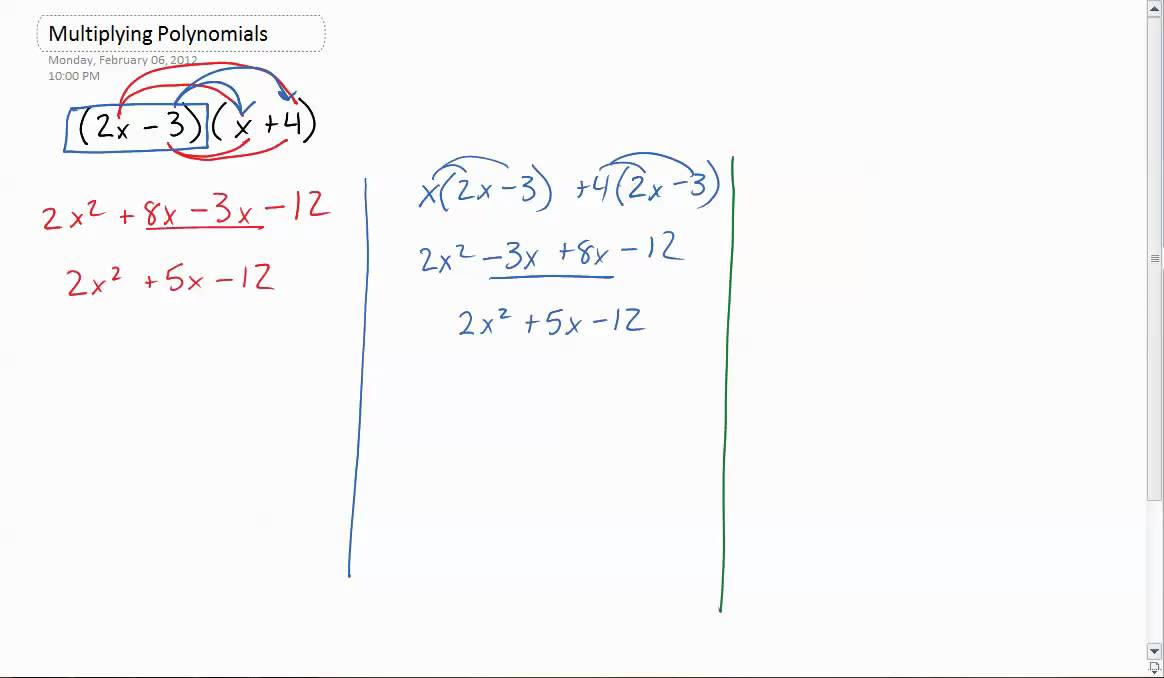 Multiplying Polynomials
Monday, February 06, 2012
10:00 PM
(2x − 3)(x + 4)
2x² + 8x − 3x − 12
2x² + 5x − 12
x(2x − 3) + 4(2x − 3)
2x² − 3x + 8x − 12
2x² + 5x − 12